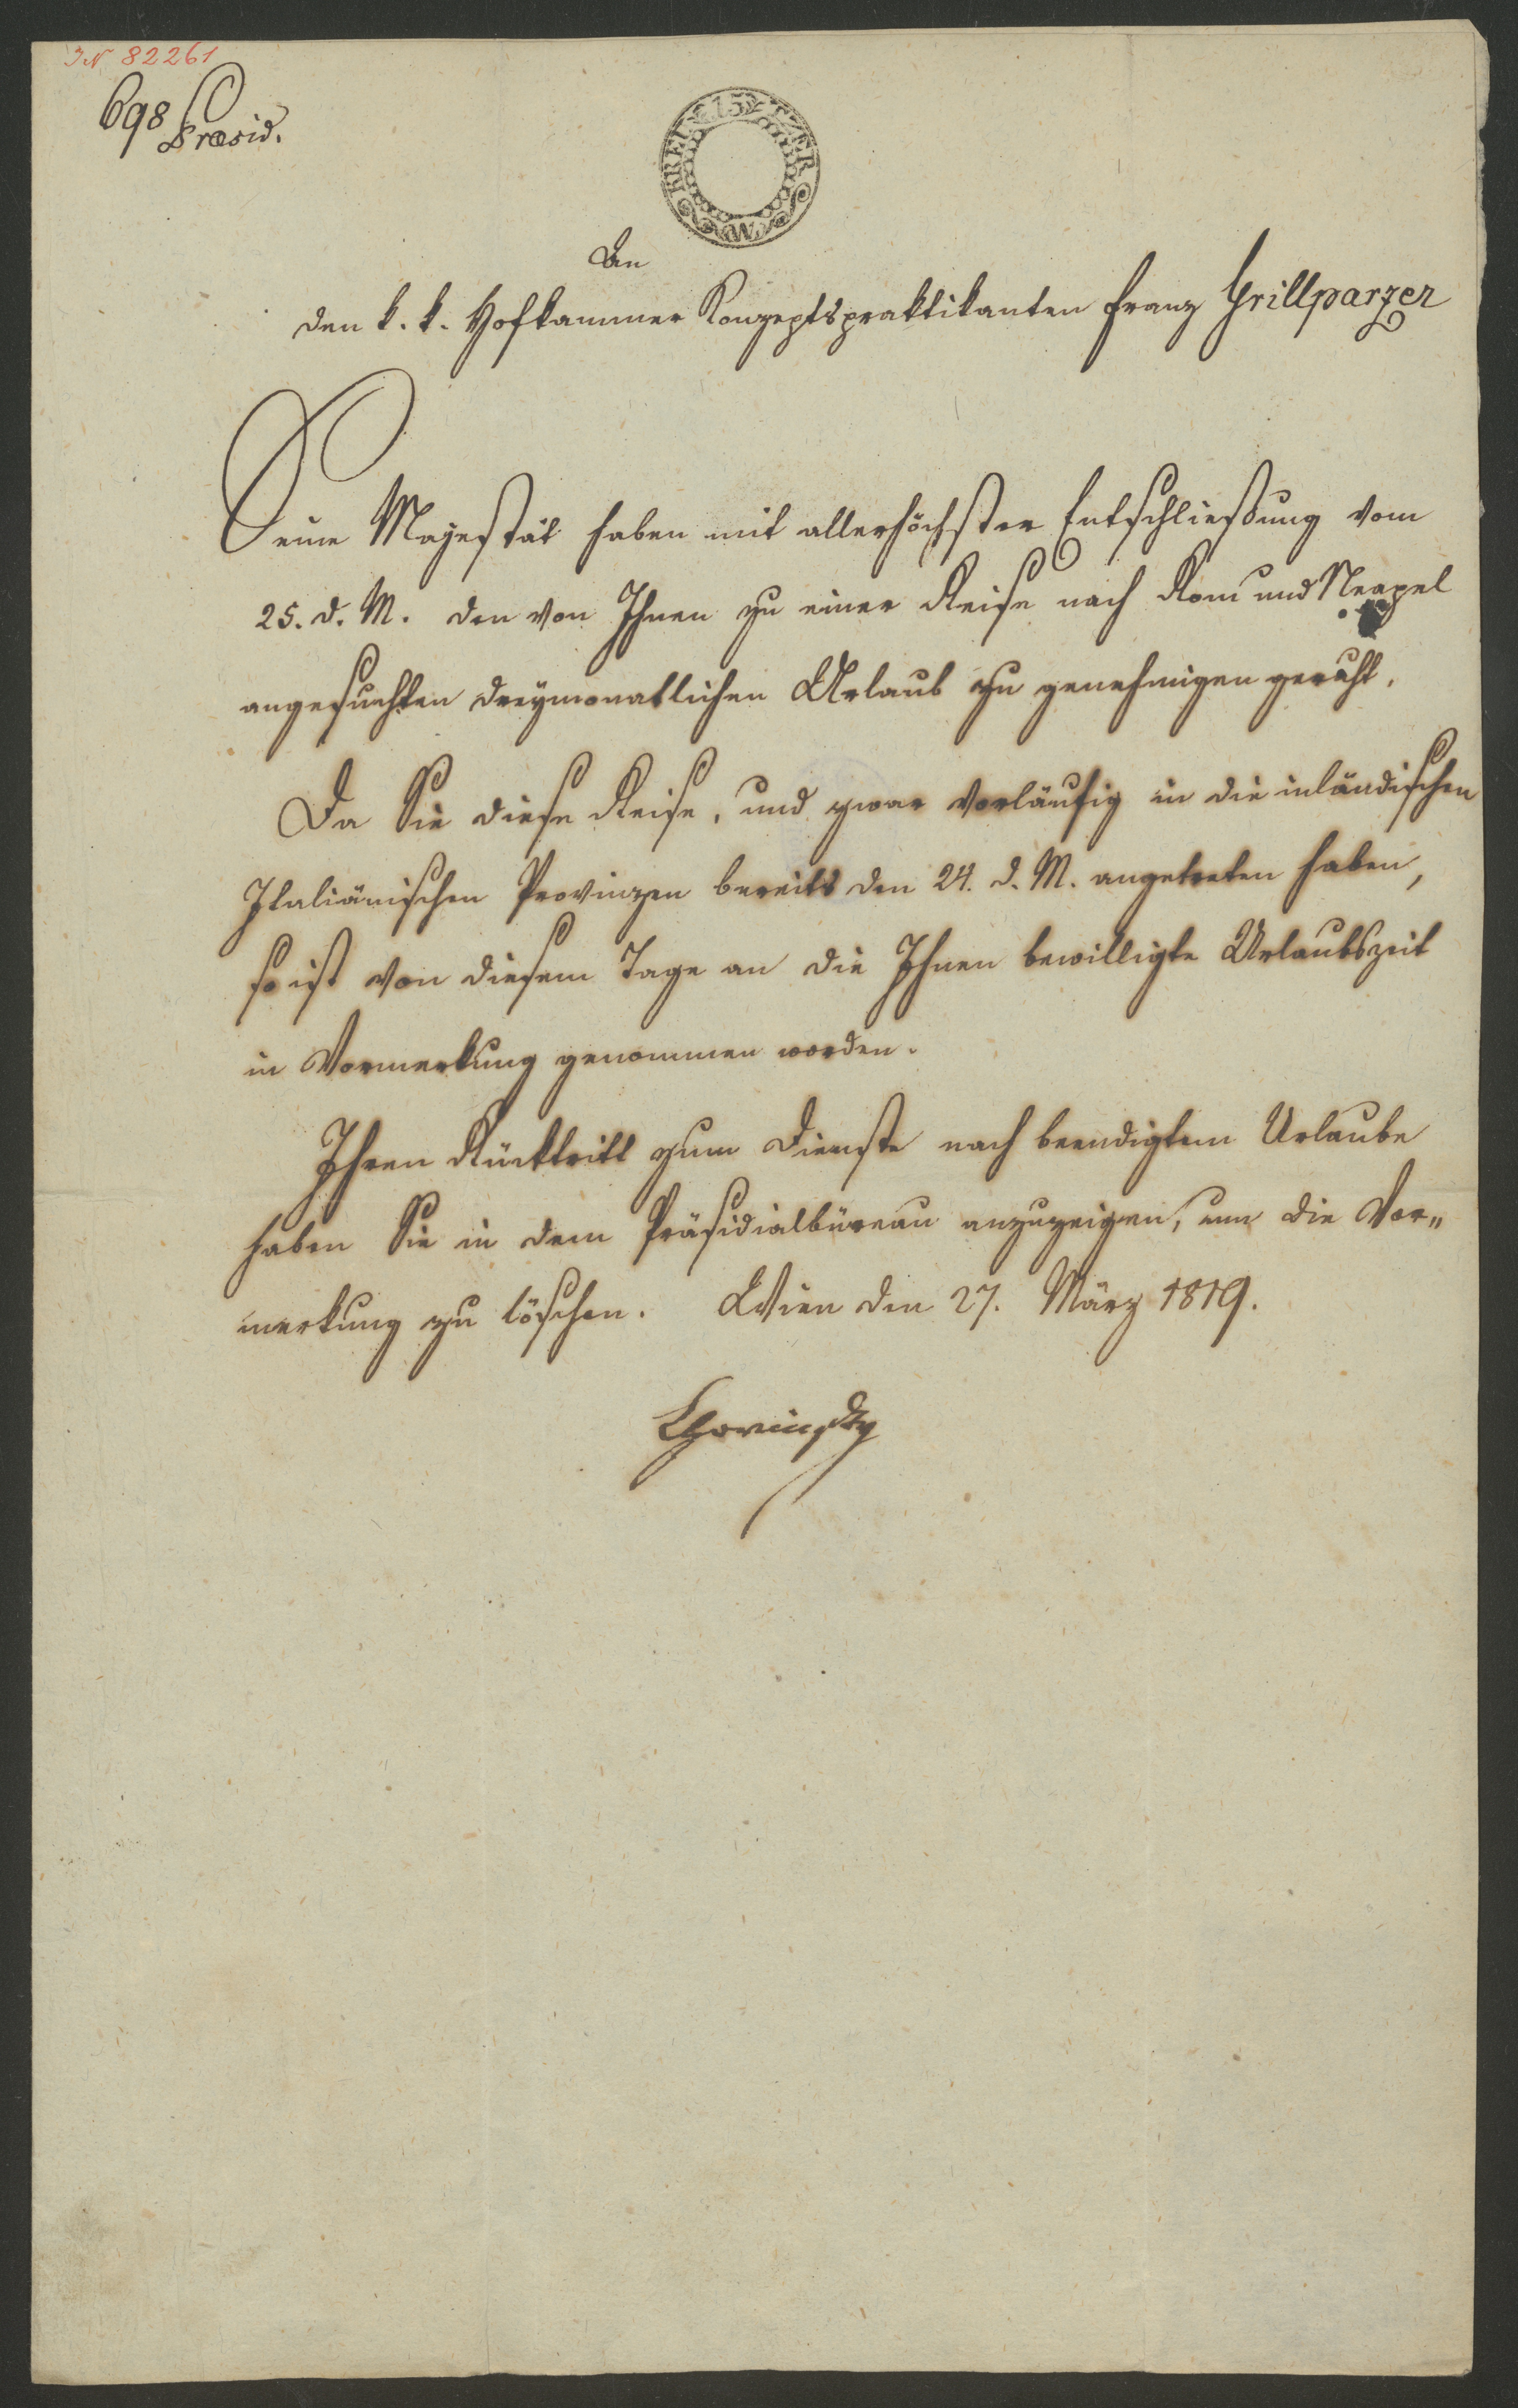 IN 82261
698 Præsid.
15 KREUTZER
C W M
An
den k. k. Hofkammer Konzeptspraktikanten Franz Grillparzer
Seine Majestät haben mit allerhöchster Entschließung vom
25. d. M. den von Ihnen zu einer Reise nach Rom und Neapel
angesuchten dreymonatlichen Urlaub zu genehmigen geruht.
Da Sie diese Reise, und zwar vorläufig in die inländischen
Italiänischen Provinzen bereits den 24. d. M. angetreten haben,
so ist von diesem Tage an die Ihnen bewilligte Urlaubszeit
in Vormerkung genommen worden.
Ihren Rücktritt zum Dienste nach beendigtem Urlaube
haben Sie in dem Präsidialbüreau anzuzeigen, um die Vor„
merkung zu löschen. Wien den 27. März 1819.
Chorinsky